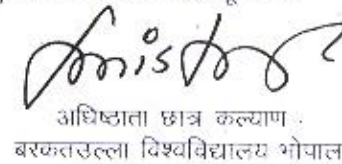 अधिष्ठाता छात्र कल्याण
बरकतउल्ला विश्वविद्यालय भोपाल